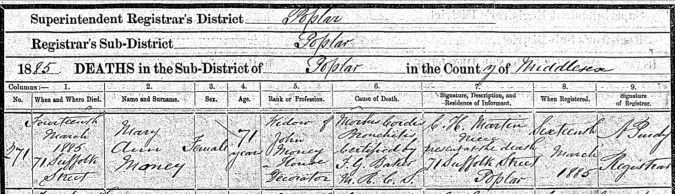 Superintendent Registrar's District Poplar
Registrar's Sub-District Poplar
1885 DEATHS in the Sub-District of Poplar in the County of Middlesex
Columns:— 1. 2. 3. 4. 5. 6. 7. 8. 9.
No. When and Where Died. Name and Surname. Sex. Age. Rank or Profession. Cause of Death. Signature, Description, and Residence of Informant. When Registered. Signature of Registrar.
271
Fourteenth
March
1885
71 Suffolk
Street
Mary
Ann
Money
Female
71
years
Widow of
John
Money
House
Decorator
Morbus Cordis
Bronchitis
Certified by
F. G. Baker
M.R.C.S.
C. H. Martin
Niece
present at the death
71 Suffolk Street
Poplar
Sixteenth
March
1885
Registrar